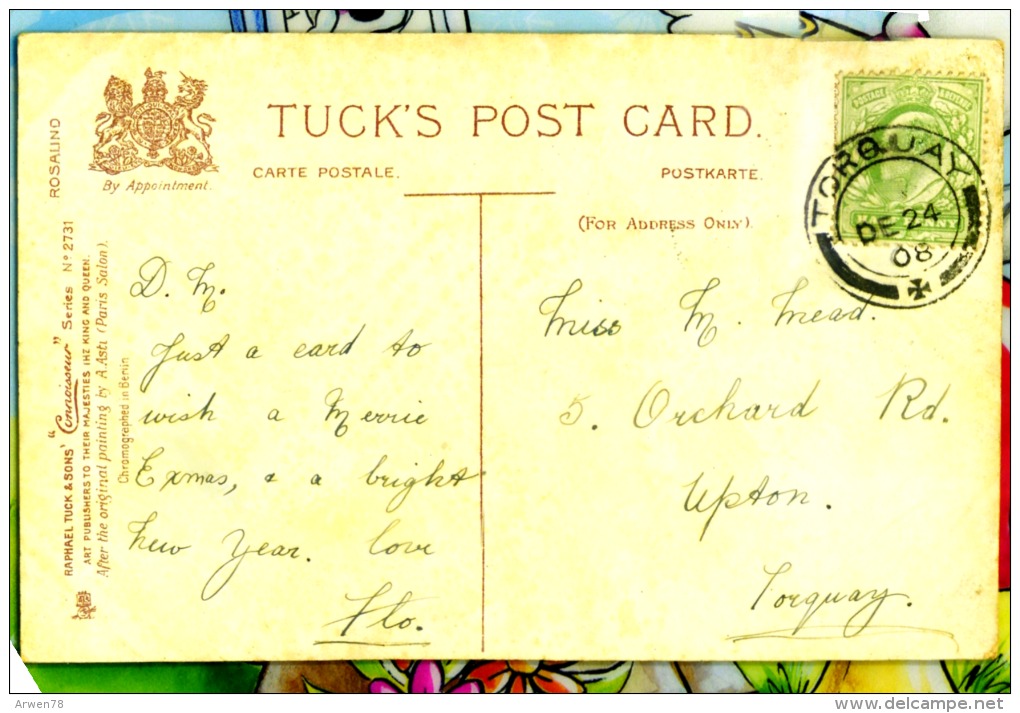 TUCK'S POST CARD.
By Appointment.
CARTE POSTALE.
POSTKARTE.
(FOR ADDRESS ONLY).
ROSALIND
RAPHAEL TUCK & SONS' "Connoisseur" Series No 2731
ART PUBLISHERS TO THEIR MAJESTIES THE KING AND QUEEN.
After the original painting by A. Asti (Paris Salon).
Chromographed in Berlin
POSTAGE & REVENUE
TORQUAY
DE 24
08
D. M.
Just a card to
wish a Merrie
Exmas, & a bright
New Year. love
Flo.
Miss M. Mead.
5. Orchard Rd.
Upton.
Torquay.
Arwen78
delcampe.net